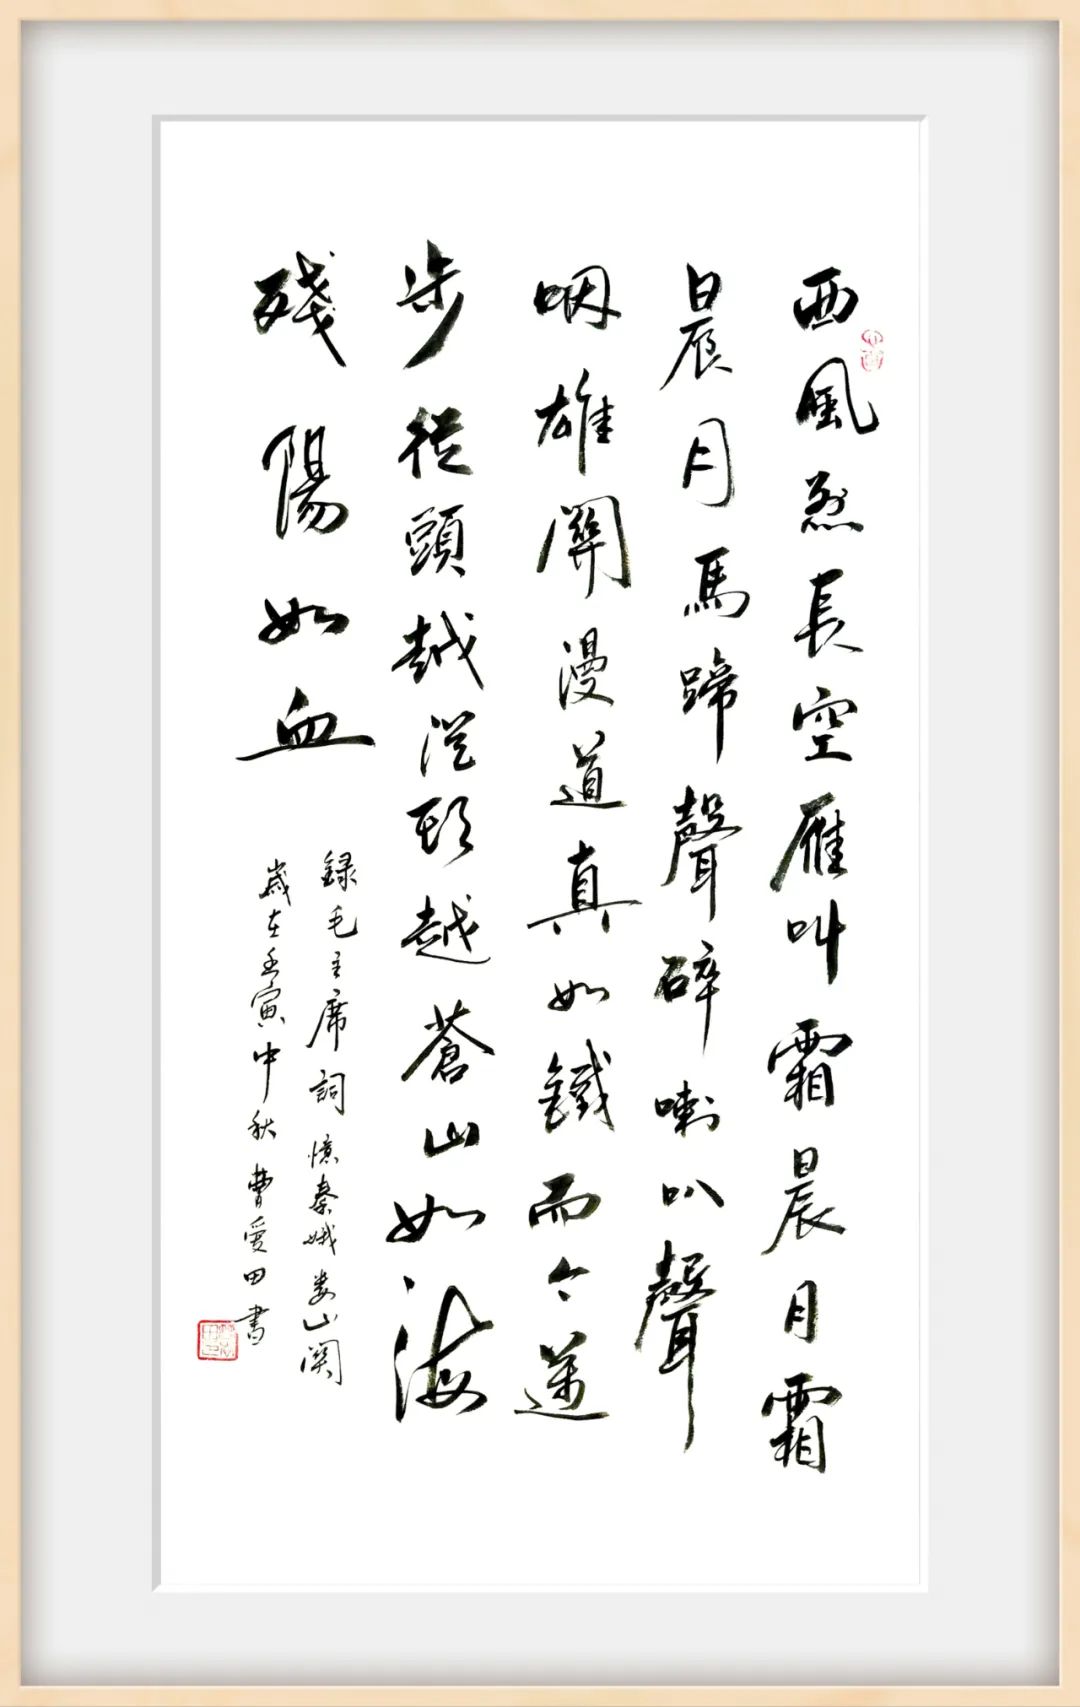 西風烈長空雁叫霜晨月霜
晨月馬蹄聲碎喇叭聲
咽雄關漫道真如鐵而今邁
步從頭越從頭越蒼山如海
殘陽如血
録毛主席詞憶秦娥娄山関
歲在壬寅中秋曹愛田書